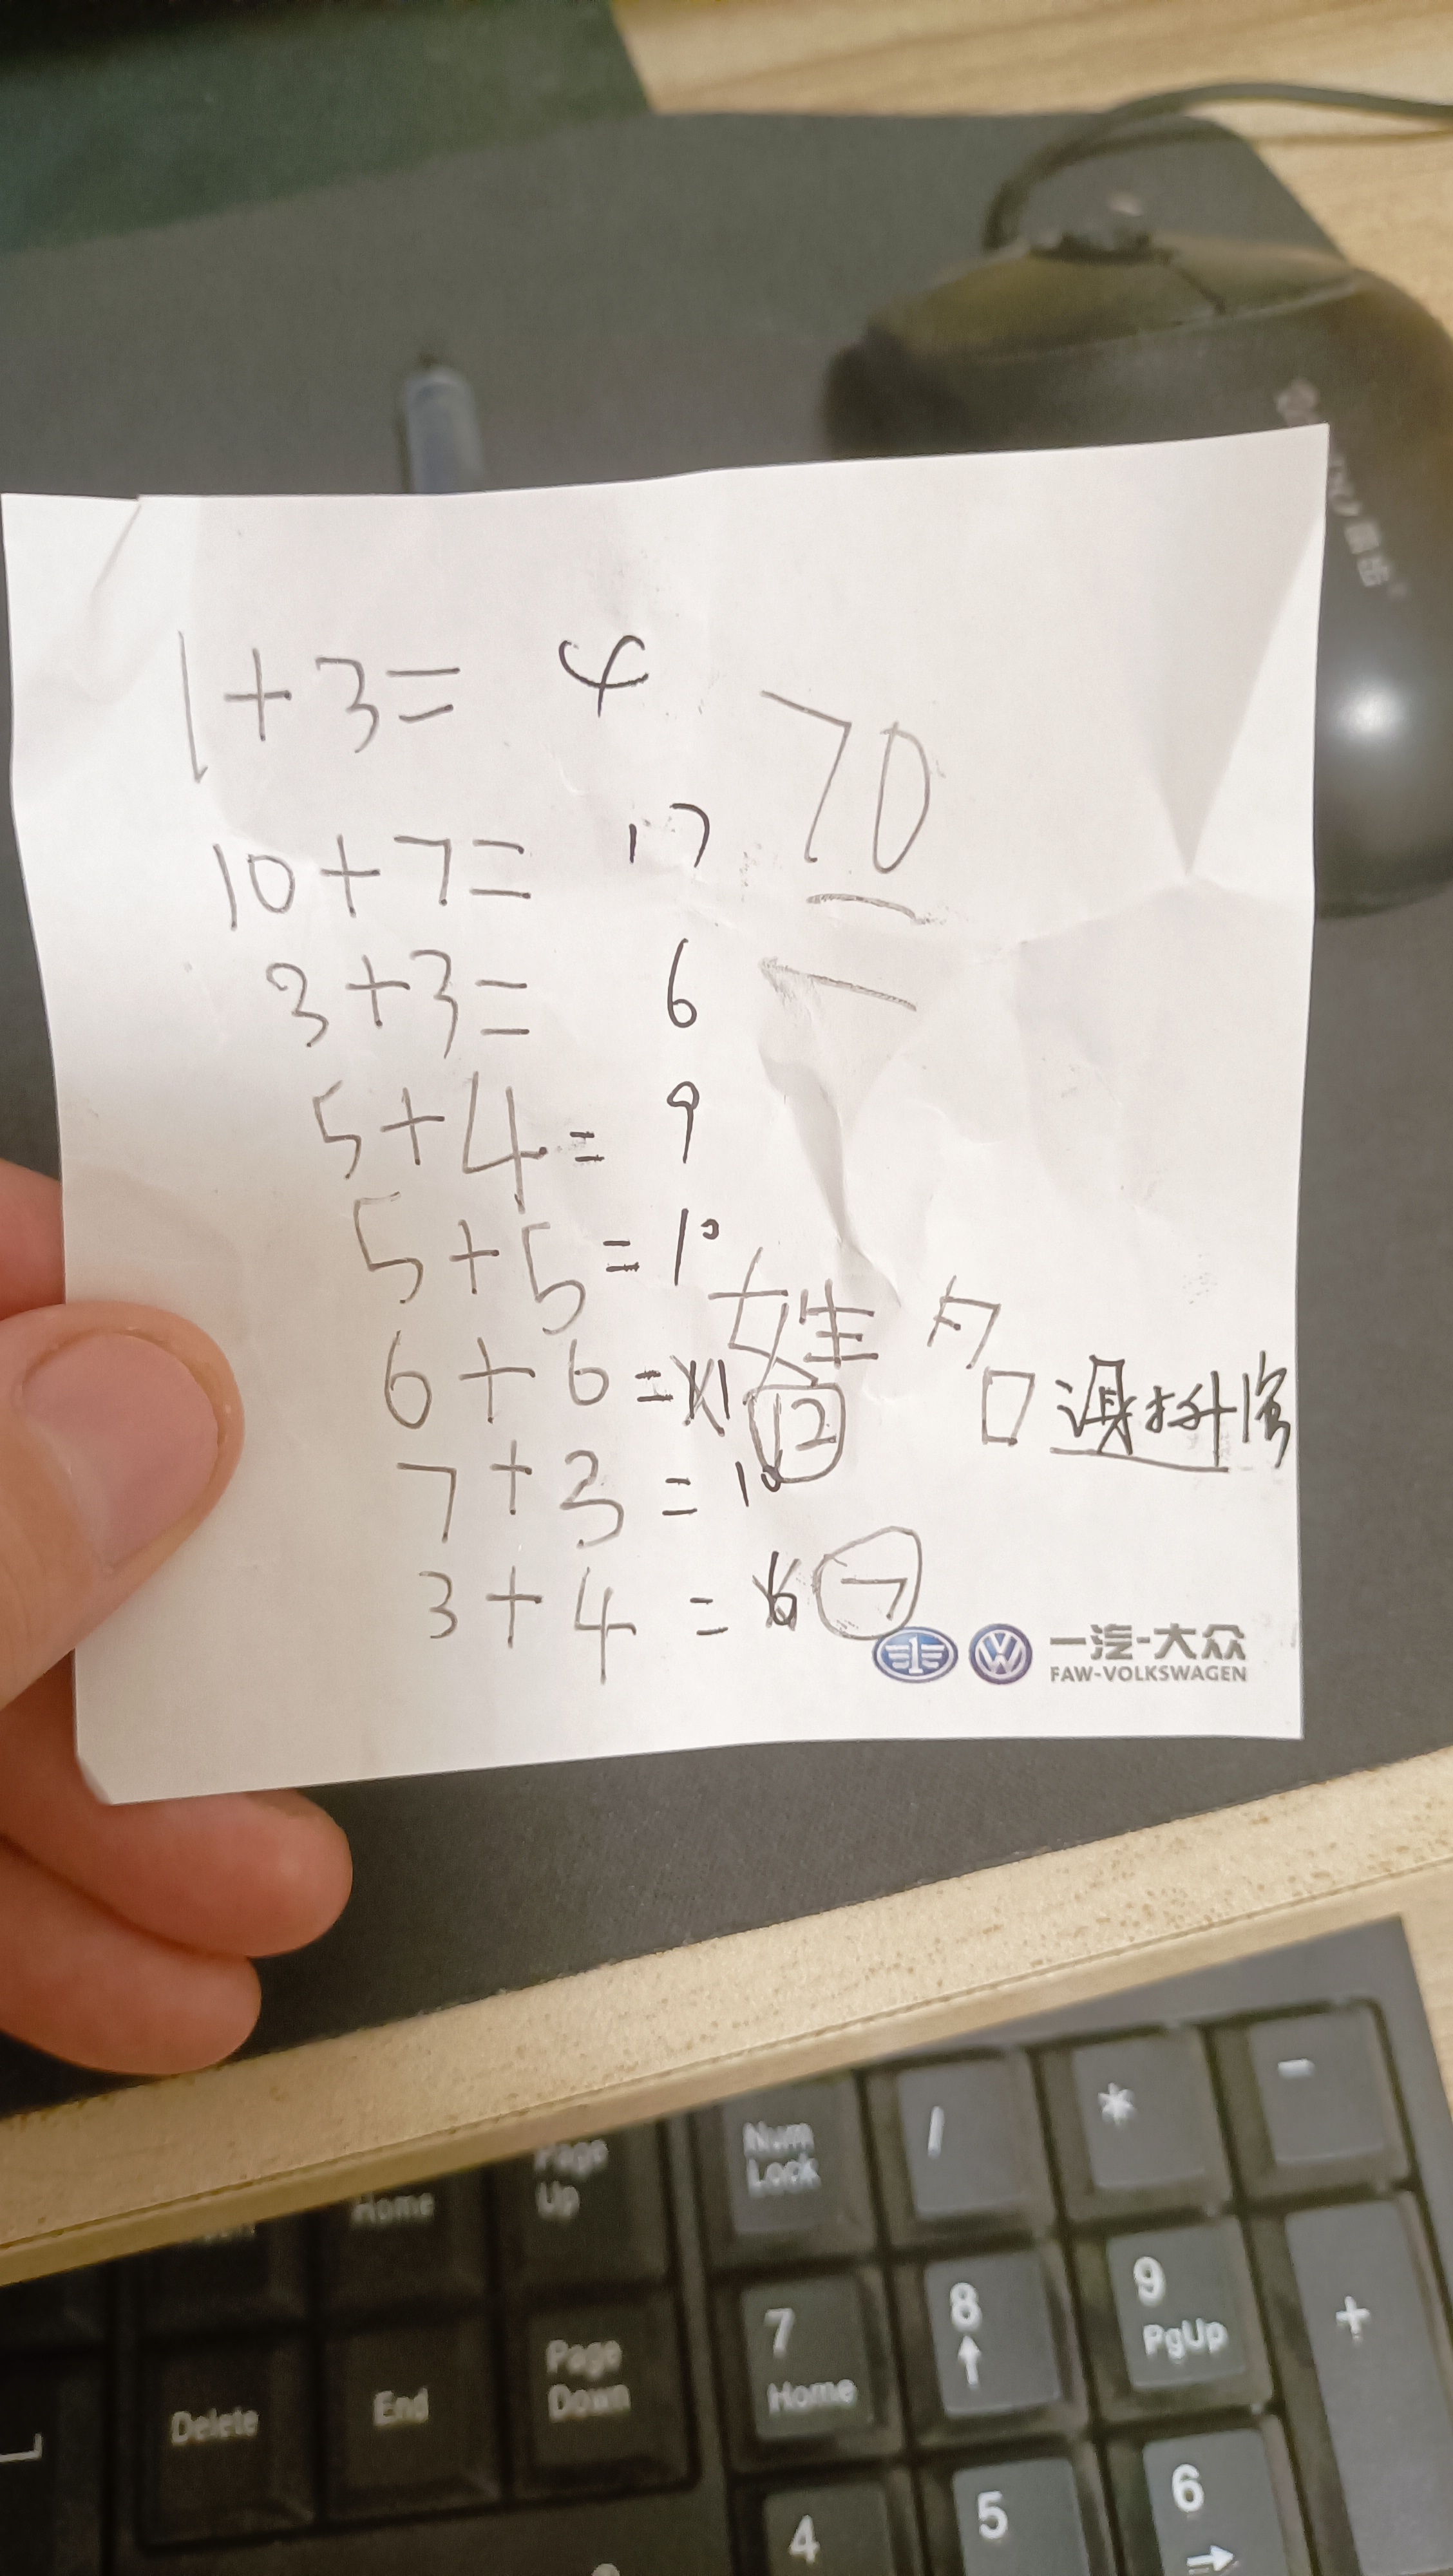 1+3= 4
70
10+7= 17
3+3= 6
5+4= 9
5+5=10
姓名
6+6= 11 12
7+3= 10
3+4= 6 7
一汽-大众
FAW-VOLKSWAGEN
Num Lock
/
*
-
Page Up
Home
7 Home
8
9 PgUp
+
Delete
End
Page Down
4
5
6